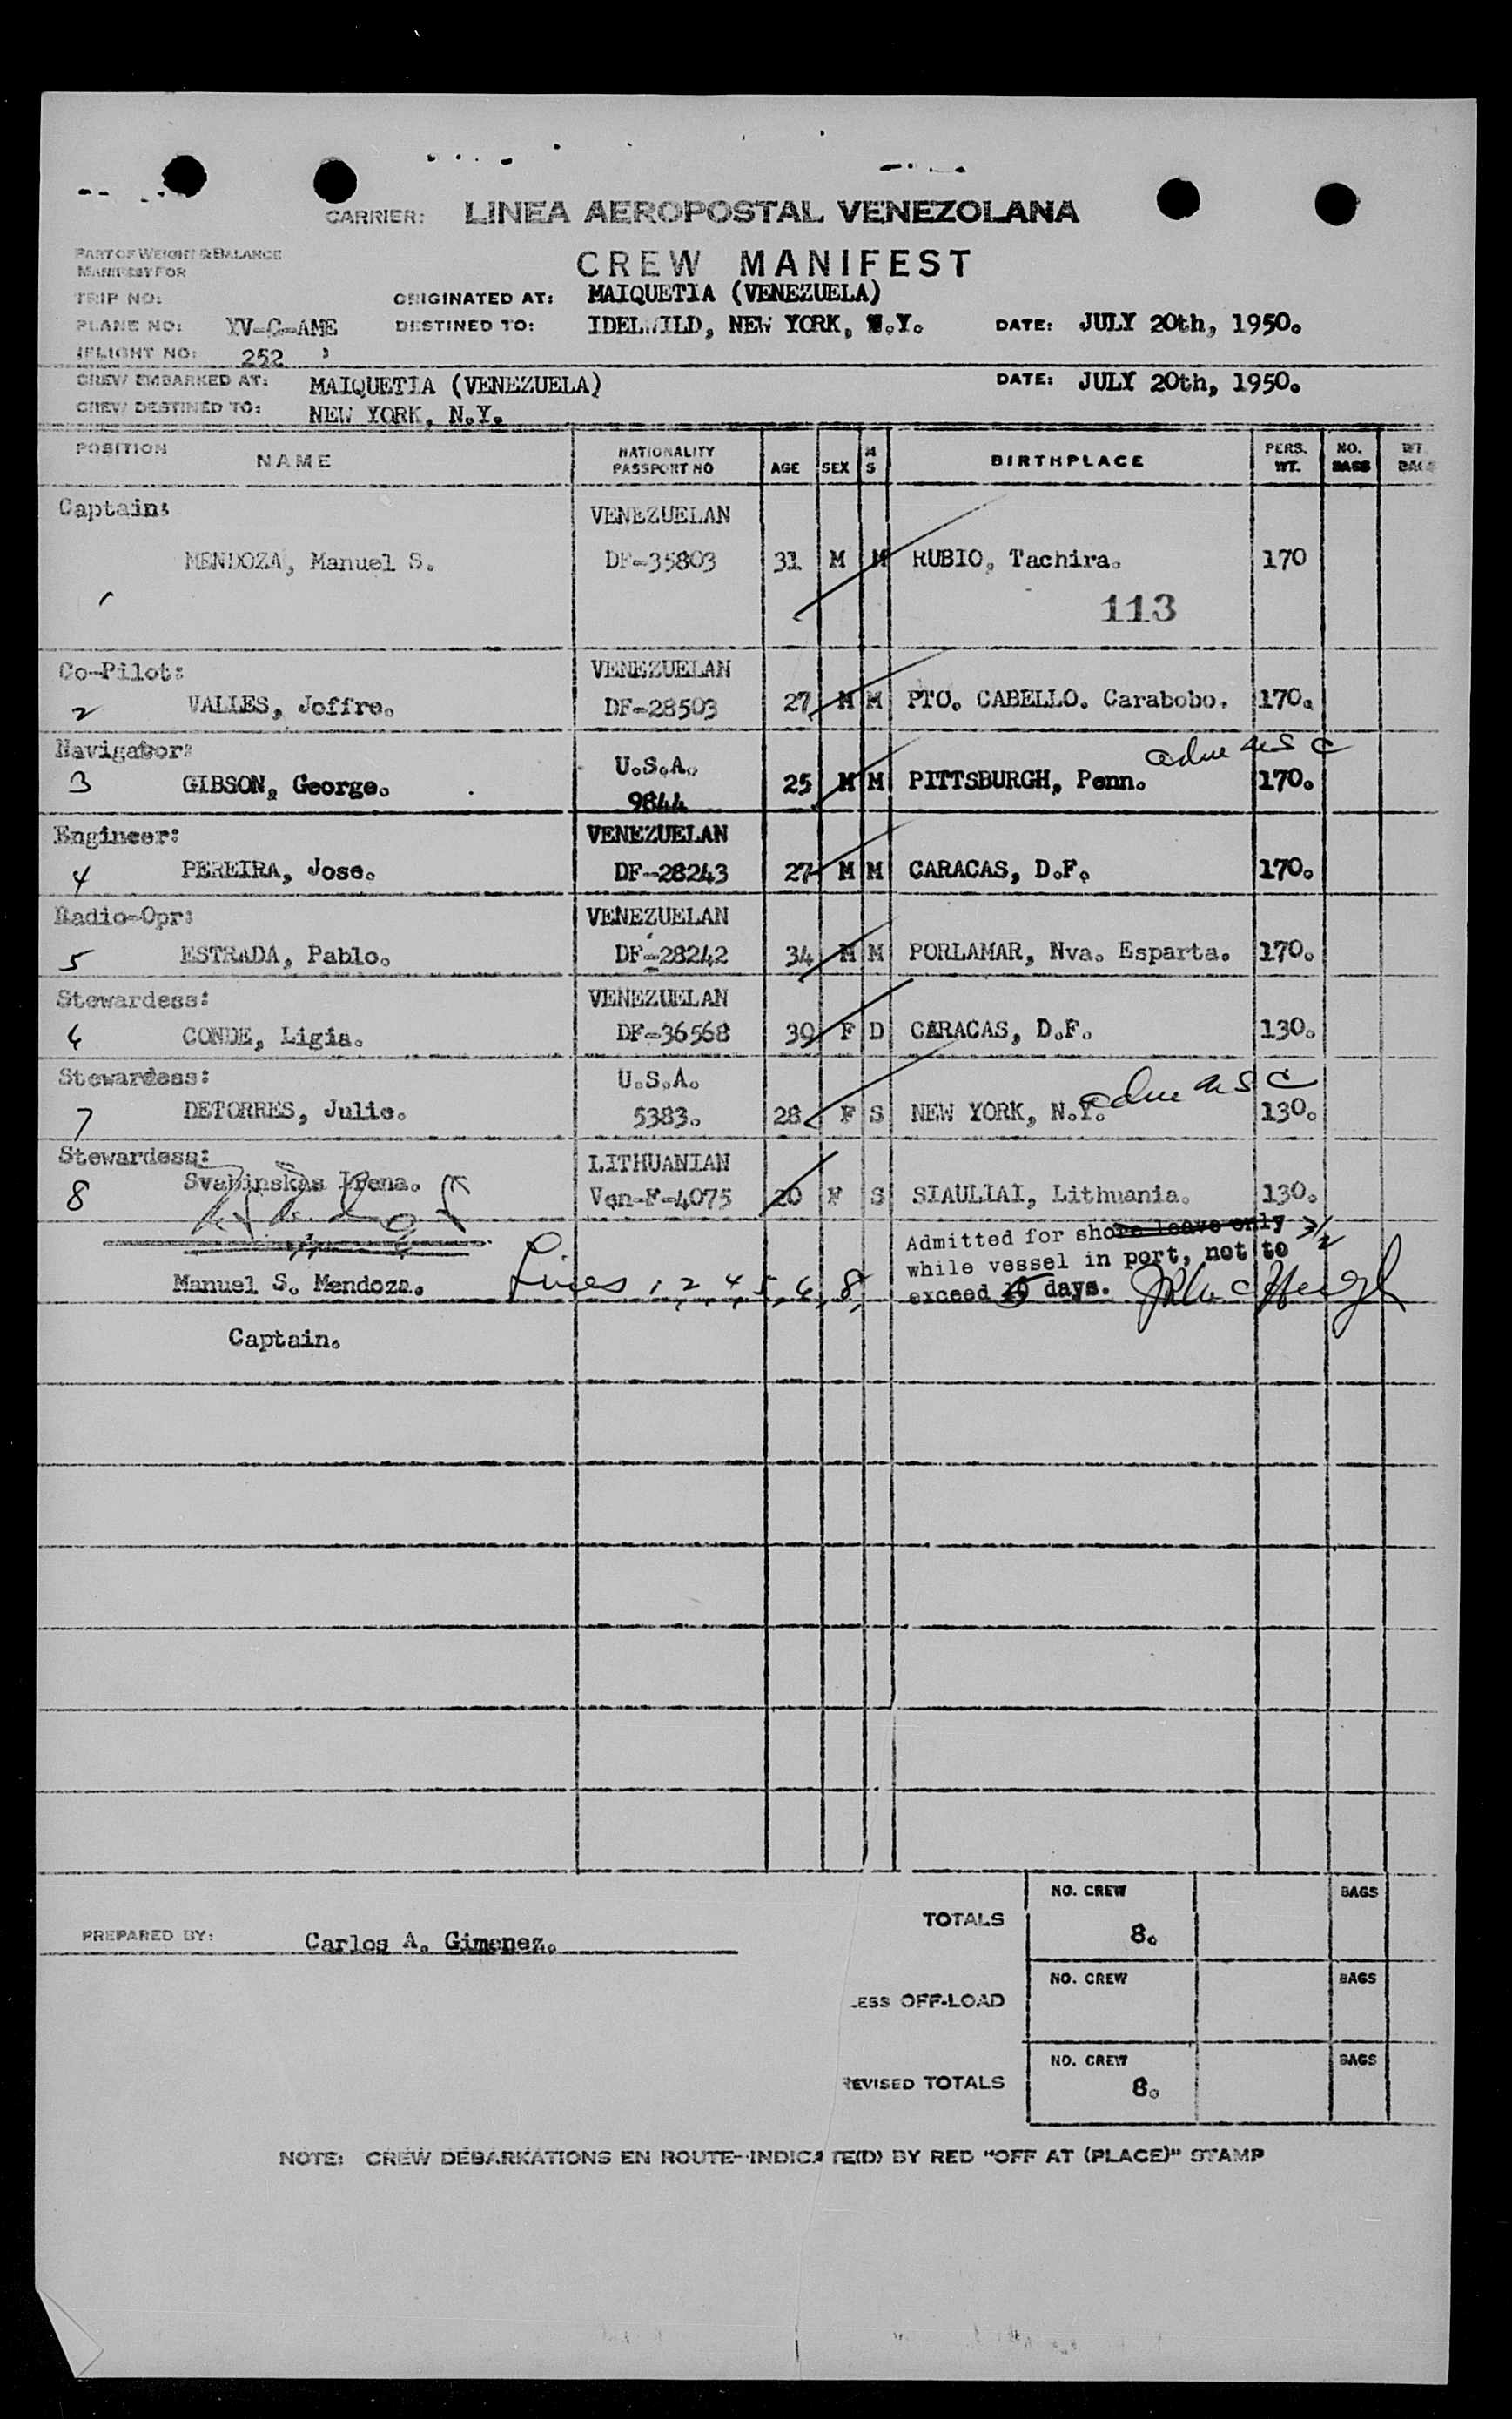 CARRIER: LINEA AEROPOSTAL VENEZOLANA
PART OF WEIGHT & BALANCE
MANIFEST FOR
CREW MANIFEST
TRIP NO: ORIGINATED AT: MAIQUETIA (VENEZUELA)
PLANE NO: YV-C-AME DESTINED TO: IDELWILD, NEW YORK, N.Y. DATE: JULY 20th, 1950.
FLIGHT NO: 252
CREW EMBARKED AT: MAIQUETIA (VENEZUELA) DATE: JULY 20th, 1950.
CREW DESTINED TO: NEW YORK, N.Y.
POSITION NAME NATIONALITY PASSPORT NO AGE SEX M S BIRTHPLACE PERS. WT. NO. BAGS WT. BAGS
Captain: VENEZUELAN
MENDOZA, Manuel S. DF-35803 31 M M RUBIO, Tachira. 170
113
Co-Pilot: VENEZUELAN
2 VALLES, Joffre. DF-28503 27 M M PTO. CABELLO. Carabobo. 170.
Navigator: U.S.A. adm USC
3 GIBSON, George. 9844 25 M M PITTSBURGH, Penn. 170.
Engineer: VENEZUELAN
4 PEREIRA, Jose. DF-28243 27 M M CARACAS, D.F. 170.
Radio-Opr: VENEZUELAN
5 ESTRADA, Pablo. DF-28242 34 M M PORLAMAR, Nva. Esparta. 170.
Stewardess: VENEZUELAN
6 CONDE, Ligia. DF-36568 39 F D CARACAS, D.F. 130.
Stewardess: U.S.A. adm USC
7 DETORRES, Julie. 5383. 28 F S NEW YORK, N.Y. 130.
Stewardess: LITHUANIAN
8 Svabinskas Irena. Ven-F-4075 20 F S SIAULIAI, Lithuania. 130.
Admitted for shore leave only
while vessel in port, not to
Manuel S. Mendoza. Lines 1, 2, 4, 5, 6, 8, exceed days.
Captain.
TOTALS NO. CREW 8. BAGS
PREPARED BY: Carlos A. Gimenez.
LESS OFF-LOAD NO. CREW BAGS
REVISED TOTALS NO. CREW 8. BAGS
NOTE: CREW DEBARKATIONS EN ROUTE--INDICATE(D) BY RED "OFF AT (PLACE)" STAMP